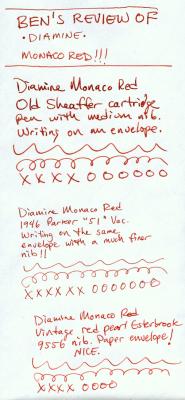 BEN'S REVIEW OF
• DIAMINE •
MONACO RED!!!
Diamine Monaco Red
Old Sheaffer cartridge
pen with medium nib.
Writing on an envelope.
XXXX OOOOOOO
Diamine Monaco Red
1946 Parker "51" Vac.
Writing on the same
envelope with a much finer
nib!!
XXXXXX OOOOOOO
Diamine Monaco Red
Vintage red pearl Esterbrook
9556 nib. Paper envelope!
NICE.
XXXX OOOO